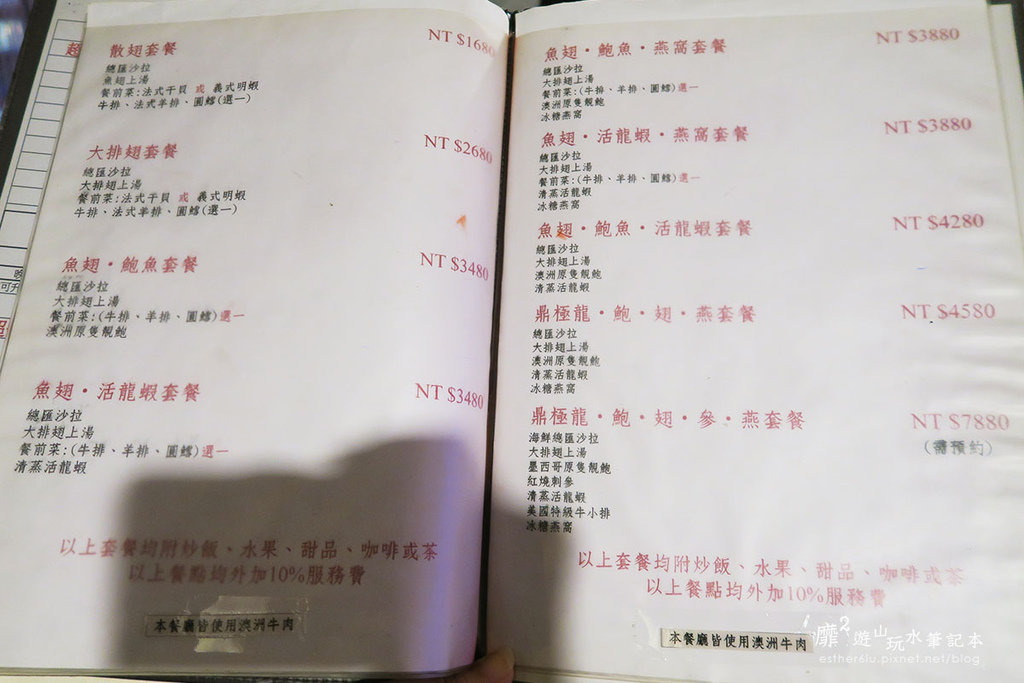 散翅套餐
NT $1680
總匯沙拉
魚翅上湯
餐前菜:法式干貝 或 義式明蝦
牛排、法式羊排、圓鱈(選一)
大排翅套餐
NT $2680
總匯沙拉
大排翅上湯
餐前菜:法式干貝 或 義式明蝦
牛排、法式羊排、圓鱈(選一)
魚翅・鮑魚套餐
NT $3480
總匯沙拉
大排翅上湯
餐前菜:(牛排、羊排、圓鱈)選一
澳洲原隻靚鮑
魚翅・活龍蝦套餐
NT $3480
總匯沙拉
大排翅上湯
餐前菜:(牛排、羊排、圓鱈)選一
清蒸活龍蝦
以上套餐均附炒飯、水果、甜品、咖啡或茶
以上餐點均外加10%服務費
本餐廳皆使用澳洲牛肉
魚翅・鮑魚・燕窩套餐
NT $3880
總匯沙拉
大排翅上湯
餐前菜:(牛排、羊排、圓鱈)選一
澳洲原隻靚鮑
冰糖燕窩
魚翅・活龍蝦・燕窩套餐
NT $3880
總匯沙拉
大排翅上湯
餐前菜:(牛排、羊排、圓鱈)選一
清蒸活龍蝦
冰糖燕窩
魚翅・鮑魚・活龍蝦套餐
NT $4280
總匯沙拉
大排翅上湯
澳洲原隻靚鮑
清蒸活龍蝦
鼎極龍・鮑・翅・燕套餐
NT $4580
總匯沙拉
大排翅上湯
澳洲原隻靚鮑
清蒸活龍蝦
冰糖燕窩
鼎極龍・鮑・翅・參・燕套餐
NT $7880
(需預約)
海鮮總匯沙拉
大排翅上湯
墨西哥原隻靚鮑
紅燒刺參
清蒸活龍蝦
美國特級牛小排
冰糖燕窩
以上套餐均附炒飯、水果、甜品、咖啡或茶
以上餐點均外加10%服務費
本餐廳皆使用澳洲牛肉
靡2遊山玩水筆記本
esther6lu.pixnet.net/blog